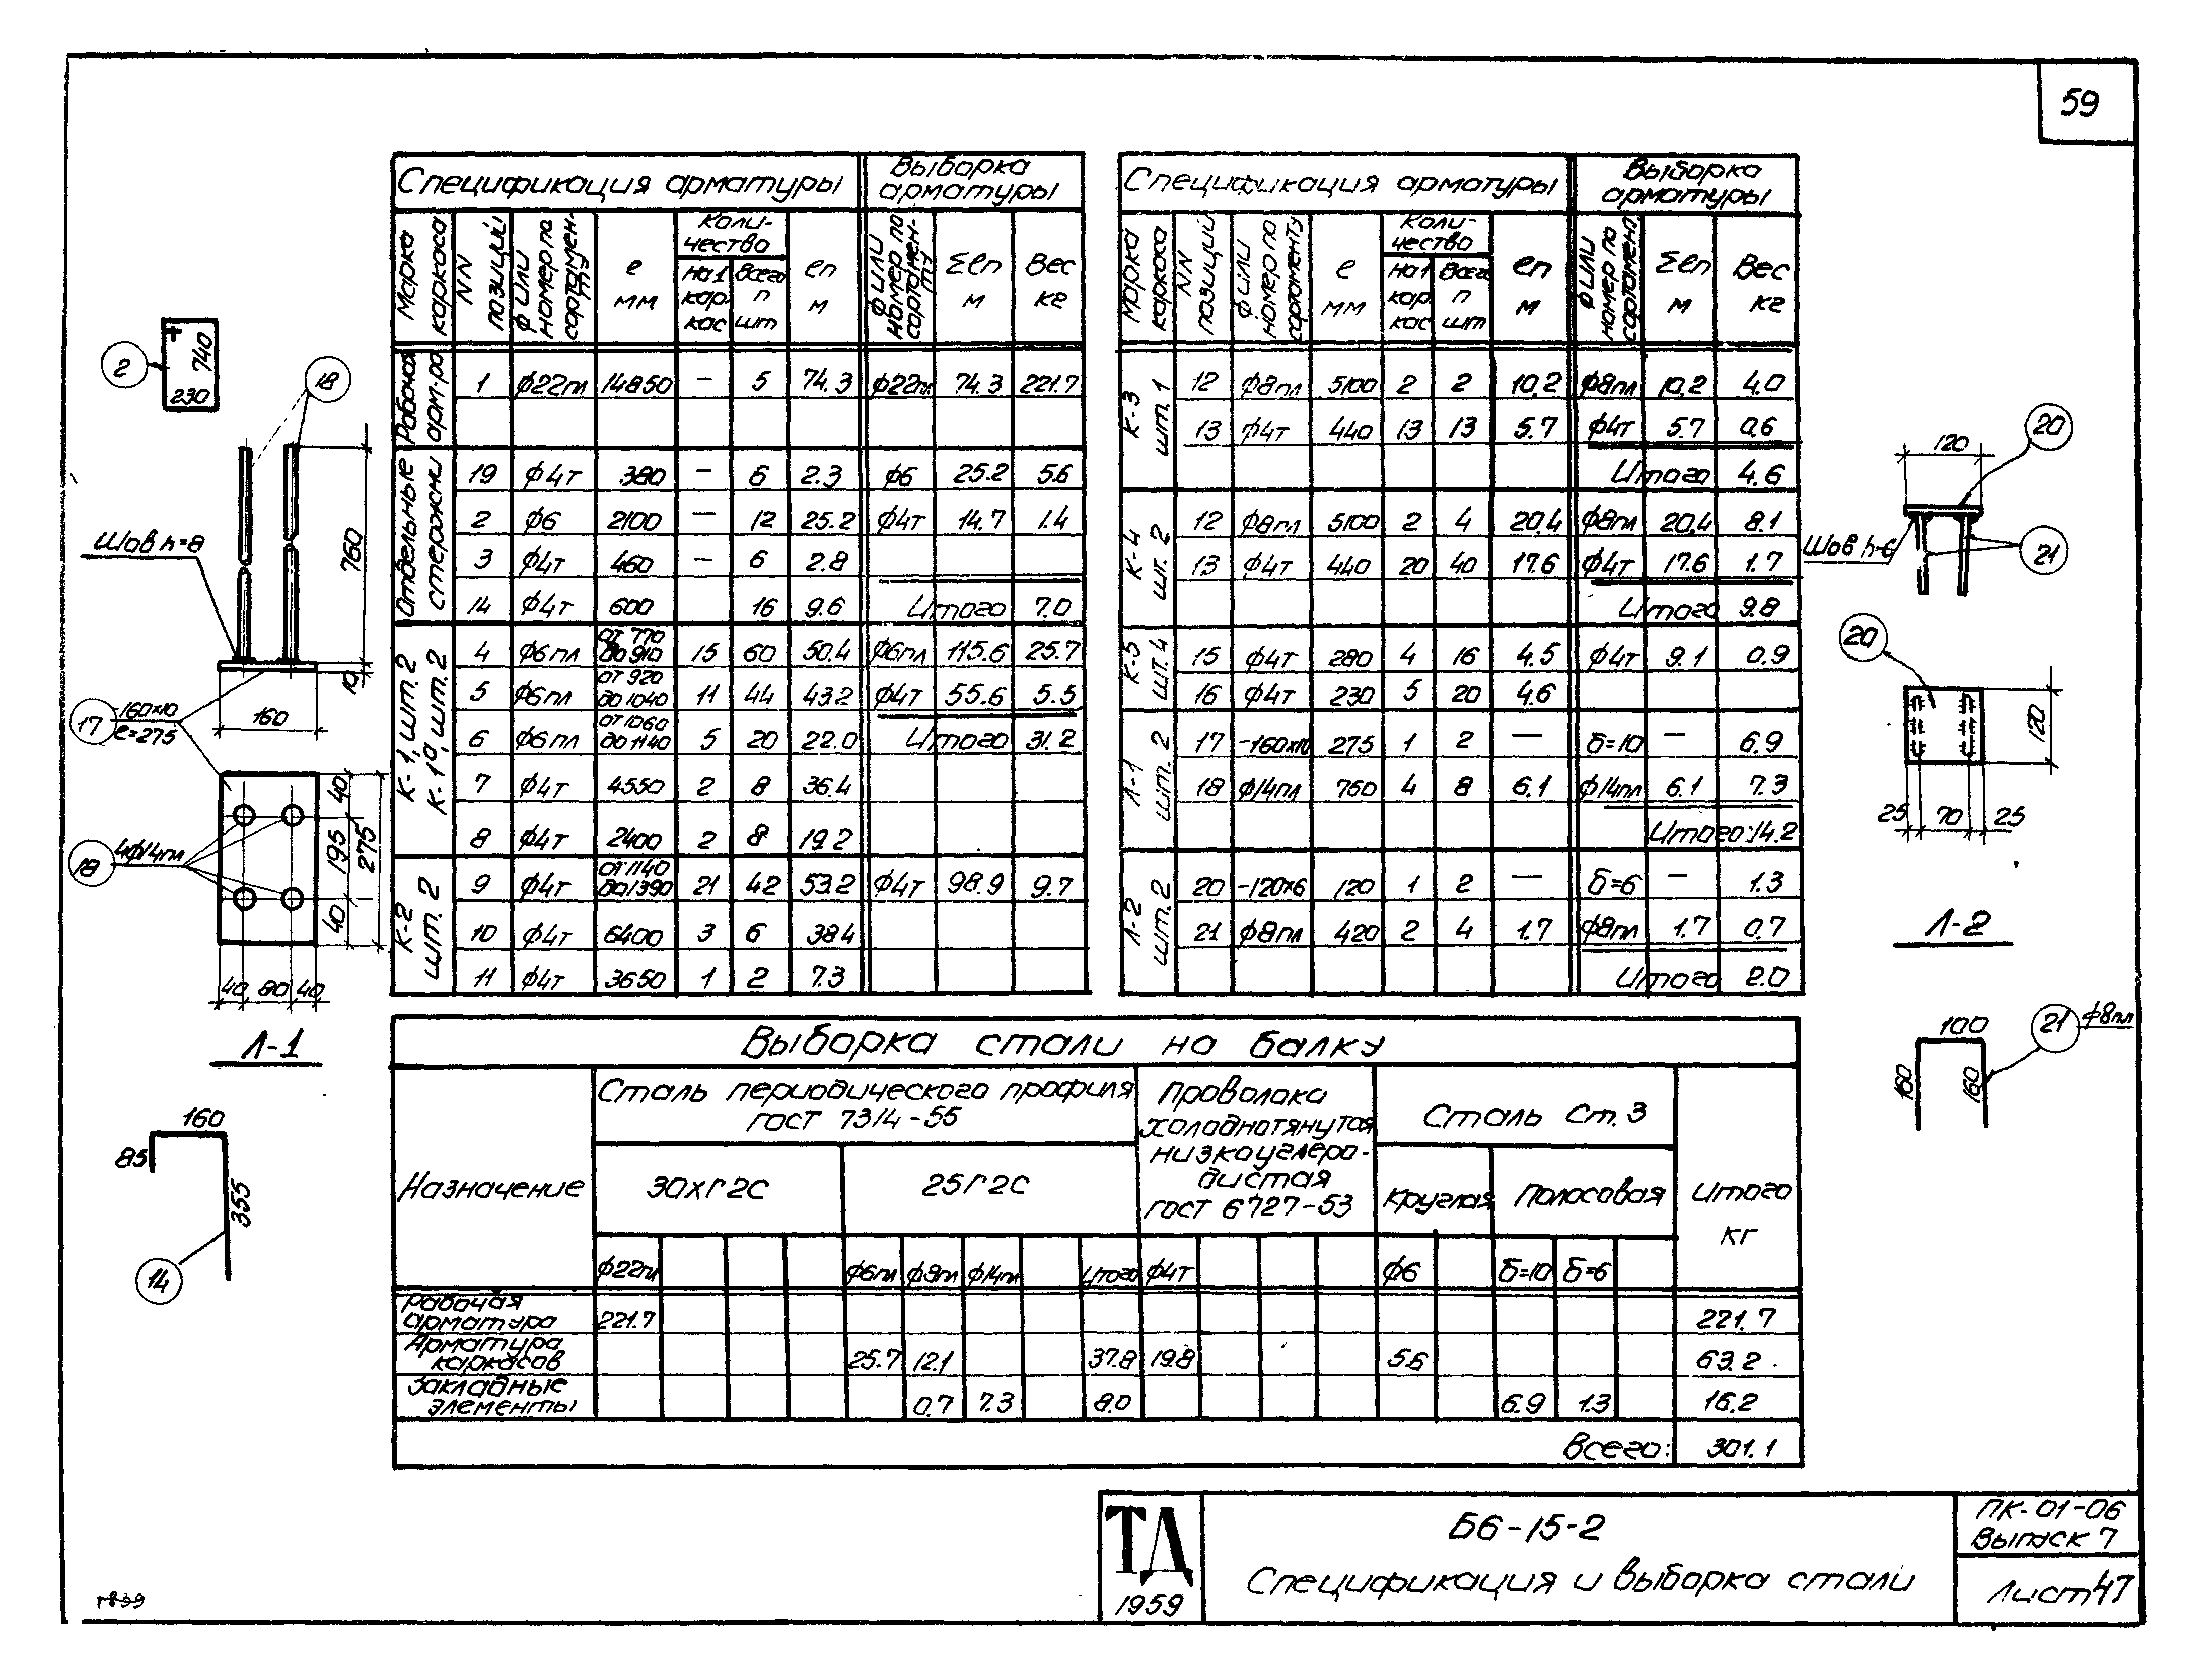 59
Спецификация арматуры
Выборка арматуры
Марка каркаса
NN позиций
ф или номер по сортамен-ту
е мм
Коли-чество
на 1 кар-кас
Всего п шт
еп м
ф или номер по сортамен-ту
Σеп м
Вес кг
Рабочая арм-ра
1 ф22пл 14850 — 5 74.3 ф22пл 74.3 221.7
Отдельные стержни
19 ф4т 380 — 6 2.3 ф6 25.2 5.6
2 ф6 2100 — 12 25.2 ф4т 14.7 1.4
3 ф4т 460 — 6 2.8
14 ф4т 600 16 9.6 Итого 7.0
К-1, шт. 2
К-1а, шт. 2
4 ф6пл от 770 до 910 15 60 50.4 ф6пл 115.6 25.7
5 ф6пл от 920 до 1040 11 44 43.2 ф4т 55.6 5.5
6 ф6пл от 1060 до 1140 5 20 22.0 Итого 31.2
7 ф4т 4550 2 8 36.4
8 ф4т 2400 2 8 19.2
К-2 шт. 2
9 ф4т от 1140 до 1390 21 42 53.2 ф4т 98.9 9.7
10 ф4т 6400 3 6 38.4
11 ф4т 3650 1 2 7.3
Спецификация арматуры
Выборка арматуры
Марка каркаса
NN позиций
ф или номер по сортаменту
е мм
Коли-чество
на 1 кар-кас
Всего п шт
еп м
ф или номер по сортамент.
Σеп м
Вес кг
К-3 шт. 1
12 ф8пл 5100 2 2 10.2 ф8пл 10.2 4.0
13 ф4т 440 13 13 5.7 ф4т 5.7 0.6
Итого 4.6
К-4 шт. 2
12 ф8пл 5100 2 4 20.4 ф8пл 20.4 8.1
13 ф4т 440 20 40 17.6 ф4т 17.6 1.7
Итого 9.8
К-5 шт. 4
15 ф4т 280 4 16 4.5 ф4т 9.1 0.9
16 ф4т 230 5 20 4.6
Л-1 шт. 2
17 -160х10 275 1 2 — δ=10 — 6.9
18 ф14пл 760 4 8 6.1 ф14пл 6.1 7.3
Итого: 14.2
Л-2 шт. 2
20 -120х6 120 1 2 — δ=6 — 1.3
21 ф8пл 420 2 4 1.7 ф8пл 1.7 0.7
Итого 2.0
2
740
230
18
Шов h=8
760
10
160
17
-160х10
е=275
18
4ф14пл
40
195
40
275
40 80 40
Л-1
160
85
355
14
20
120
Шов h=6
21
20
120
25 70 25
Л-2
21 ф8пл
100
160
160
Выборка стали на балку
Назначение
Сталь периодического профиля
ГОСТ 7314-55
30хг2с
25г2с
Проволока
холоднотянутая
низкоуглеро-
дистая
гост 6727-53
Сталь Ст. 3
Круглая
Полосовая
Итого
кг
ф22пл ф6пл ф8пл ф14пл Итого ф4т ф6 δ=10 δ=6
Рабочая
арматура 221.7 221.7
Арматура
каркасов 25.7 12.1 37.8 19.8 5.6 63.2
Закладные
элементы 0.7 7.3 8.0 6.9 1.3 16.2
Всего: 301.1
ТД
1959
Б6-15-2
Спецификация и выборка стали
ПК-01-06
Выпуск 7
Лист 47